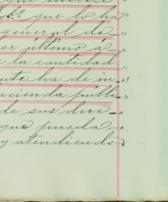 que lo ha
general de
por último a
e la cantidad
nte ha de in-
cienda públi-
de sus dere-
que pueda
y atendiendo